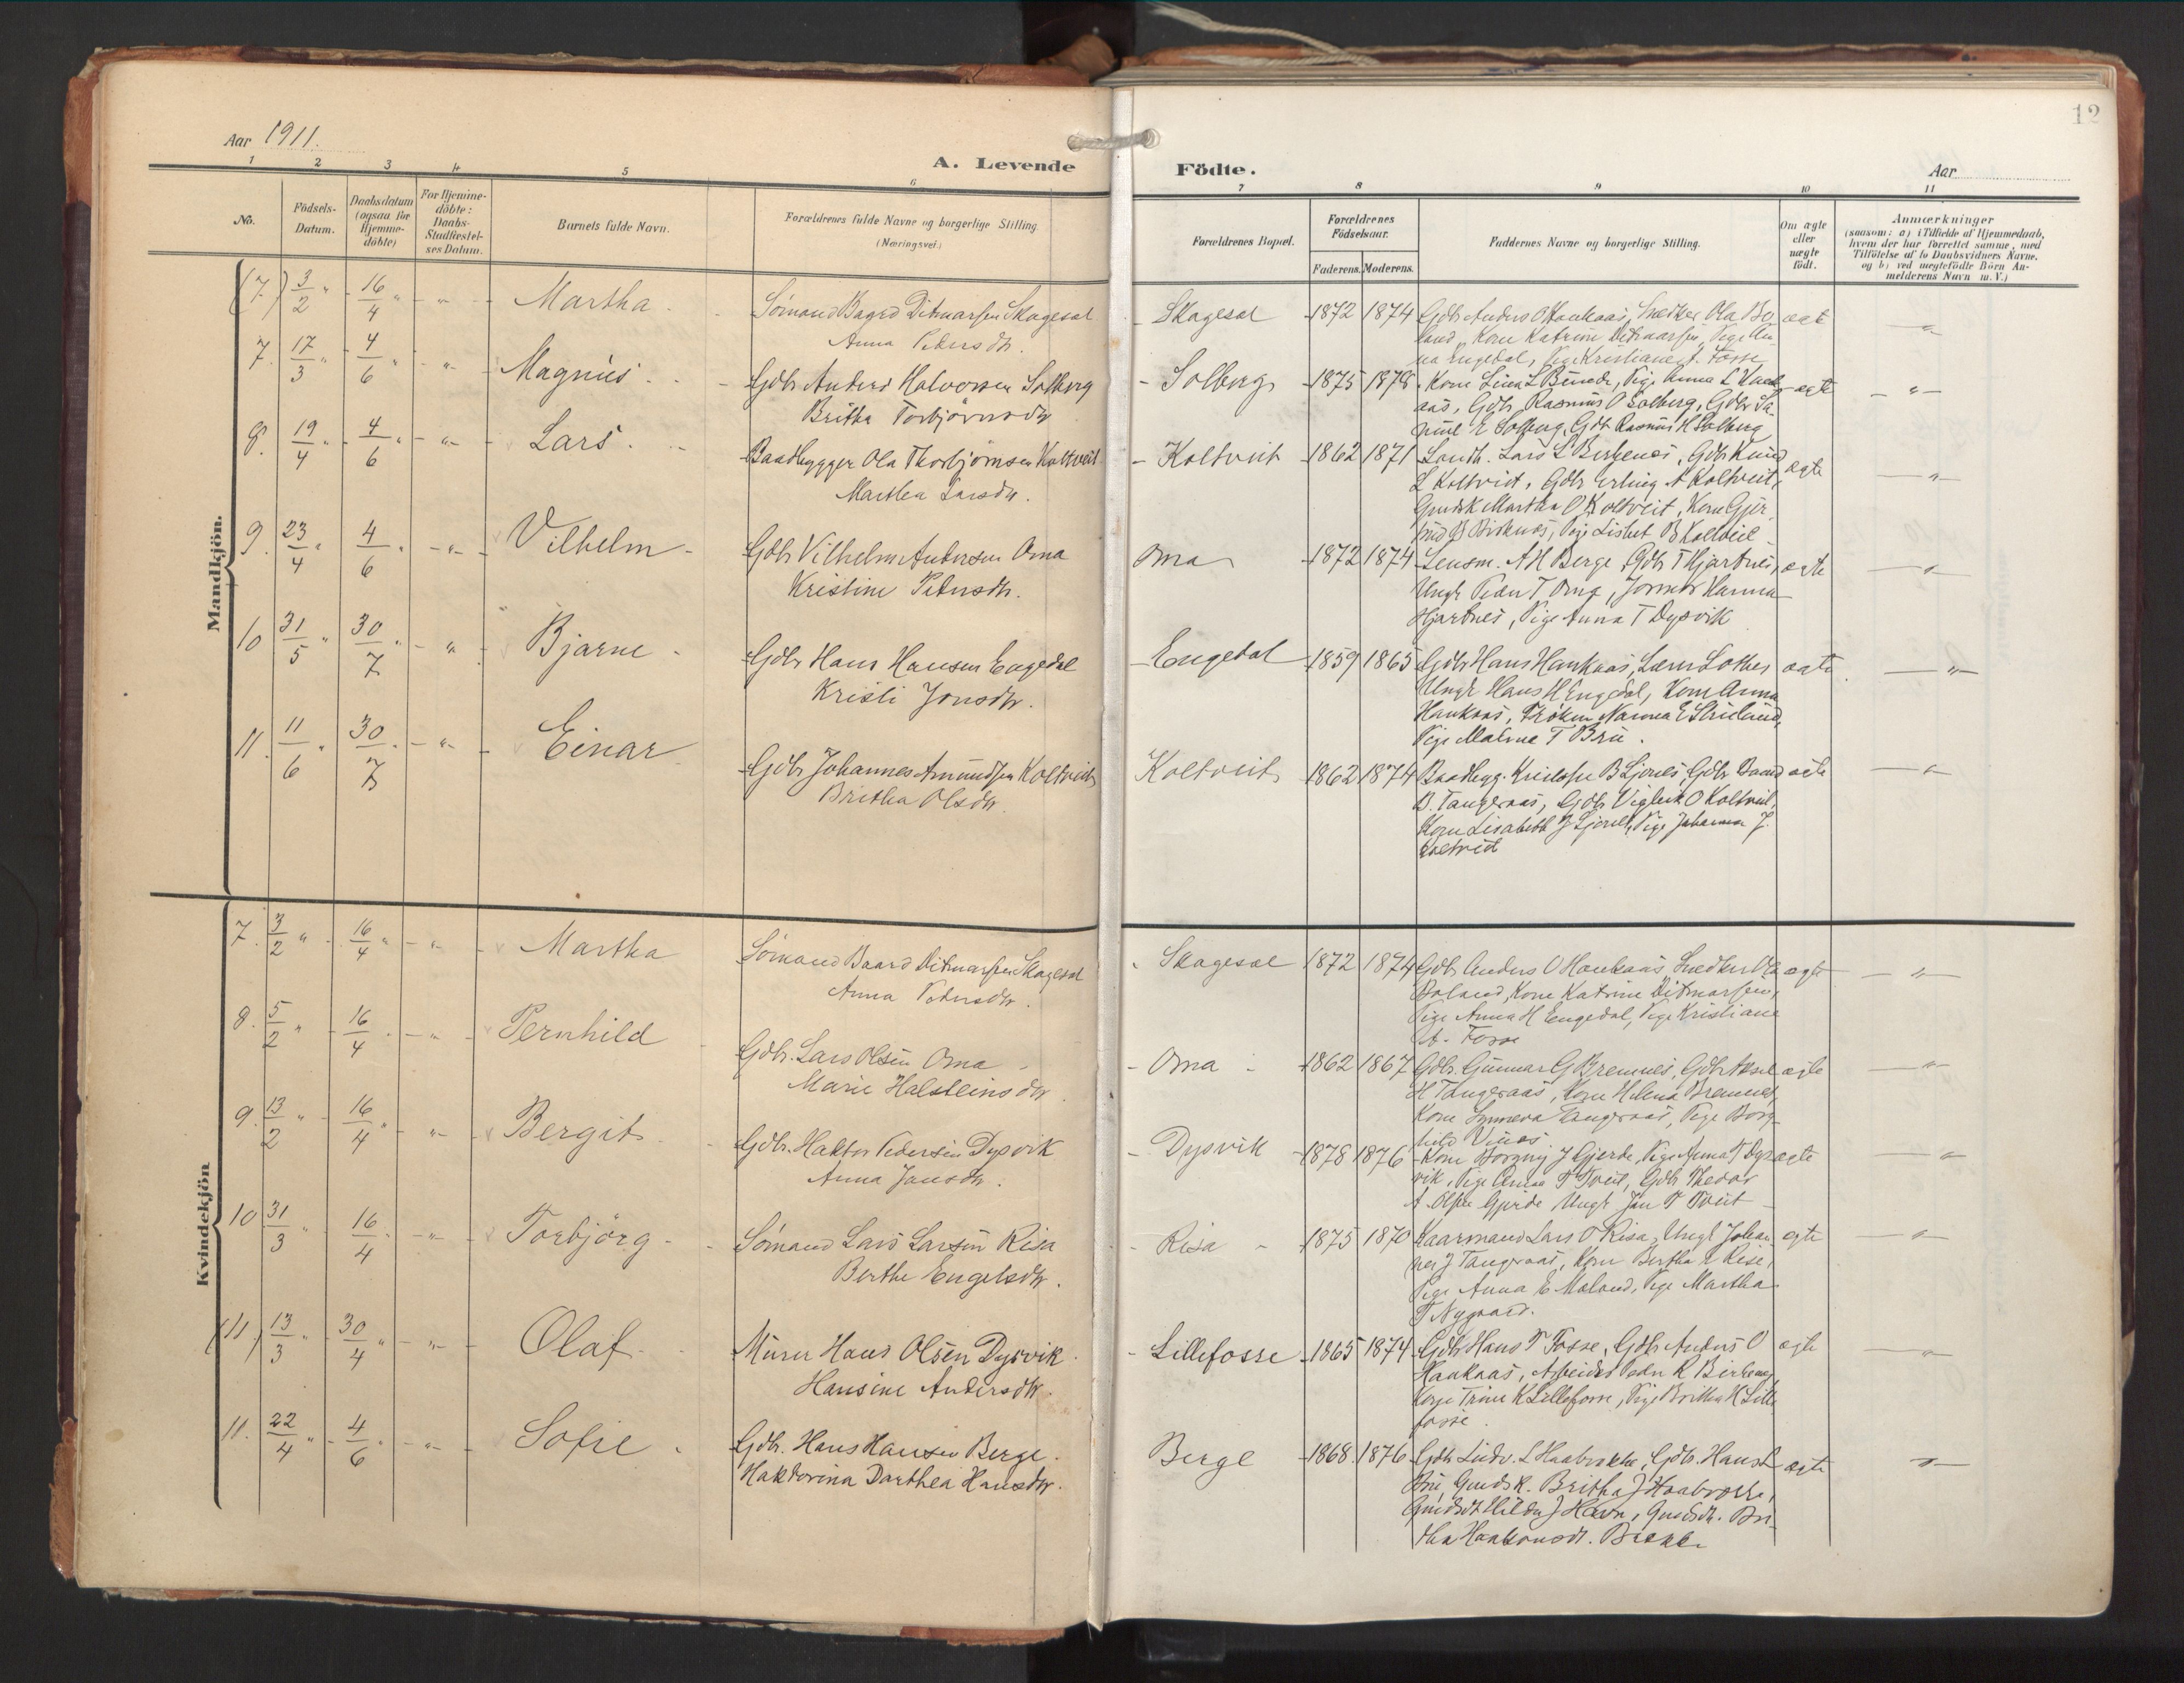 12
Aar 1911.
A. Levende
Födte.
Aar
1 2 3 4 5 6 7 8 9 10 11
No.
Födsels-
Datum.
Daabsdatum
(ogsaa for
Hjemme-
döbte)
For Hjemme-
döbte:
Daabs-
Stadfæstel-
ses Datum.
Barnets fulde Navn.
Forældrenes fulde Navne og borgerlige Stilling
(Næringsvei.)
Forældrenes Bopæl.
Forældrenes
Födselsaar.
Faderens. Moderens.
Faddernes Navne og borgerlige Stilling.
Om ægte
eller
uægte
födt.
Anmærkninger
(saasom: a) i Tilfælde af Hjemmedaab,
hvem der har forrettet samme, med
Tilföielse af to Daabsvidners Navne.
og b) ved uægtefödte Börn An-
melderens Navn m. V.)
Mandkjön.
(7.) 3/2 " 16/4 " - " - Martha
Sömand Baard Ditmarsen Skagesal
Anna Pedersdtr.
Skagesal 1872 1874
Gdbr Anders O Haukaas, Snedker Ola Bo
land, Kone Katrine Ditmarsen, Pige An
na Engedal, Pige Kristiane A. Fosse
ægte
7. 17/3 " 4/6 " - " - Magnus
Gdbr Anders Halvorsen Solberg
Britha Torbjörnsdtr
Solberg 1875 1878
Kone Lina L , Pige Anna L Hauk
aas, Gdbr Rasmus O Solberg, Gdbr Sa
muel E Solberg, Gdbr Rasmus H Solberg
ægte
8. 19/4 " 4/6 " - " - Lars
Baadbygger Ola Thorbjørnsen Koltveit
Martha Larsdtr.
Koltveit 1862 1871
Landh. Lars L Birkenes, Gdbr Knud
L Koltveit, Gdbr Erling A Koltveit,
Gmdsk Martha O Koltveit, Kone Gjer
trud B Birknes, Pige Lisbet B Koltveit
ægte
9. 23/4 " 4/6 " - " - Vilhelm
Gdbr Vilhelm Andersen Oma
Kristine Petersdtr.
Oma 1872 1874
Lensm. A H Berge, Gdbr T Hjartnes,
Ungk Peder T Oma, Hanna
Hjartnes, Pige Anna T Dysvik
ægte
10 31/5 " 30/7 " - " - Bjarne
Gdbr Hans Hansen Engedal
Kristi Jonsdtr.
Engedal 1859 1865
Gdbr Hans Haukaas, Lærer Lothe,
Ungk Hans H Engedal, Kone Anna
Haukaas, Frøken Nanna E ,
Pige Malene T Bru.
ægte
11. 11/6 " 30/7 " - " - Einar
Gdbr Johannes Amundsen Koltveit
Britha Olsdtr.
Koltveit 1862 1874
Baadbyg. Kristofer B Ljones, Gdbr Baard
B. Tangeraas, Gdbr Vigleik O Koltveit,
Kone Lisabeth J Ljones, Pige Johanna J.
Koltveit
ægte
Kvindekjön
7. 3/2 " 16/4 " - " - Martha
Sömand Baard Ditmarsen Skagesal
Anna Pedersdtr.
Skagesal 1872 1874
Gdbr Anders O Haukaas, Snedker Ola
Boland, Kone Katrine Ditmarsen,
Pige Anna H Engedal, Pige Kristiane
A. Fosse
ægte
8. 5/2 " 16/4 " - " - Pernhild
Gdbr. Lars Olsen Oma
Marie Halsteinsdtr.
Oma 1862 1867
Gdbr. Gunnar G Bremnes, Gdbr Aksel
H Tangeraas, Kone Helena Bremnes,
Kone Synneva Tangeraas, Pige Borg
hild Vines
ægte
9. 13/2 " 16/4 " - " - Bergit
Gdbr. Haktor Pedersen Dysvik
Anna Jansdtr.
Dysvik 1878 1876
Kone Borgny J Gjerde, Pige Anna T Dys
vik, Pige Anna P Tveit, Gdbr Thedor
A Olsen Gjerde Ungk Jan P Tveit
ægte
10 31/3 " 16/4 " - " - Torbjörg
Sömand Lars Larsen Risa
Berthe Engelsdtr.
Risa 1875 1870
Kaarmand Lars O Risa, Ungk Johan
nes J Tangeraas, Kone Bertha L Risa,
Pige Anna E Moland, Pige Martha
T Nygaard.
ægte
(11.) 13/3 " 30/4 " - " - Olaf
Murer Hans Olsen Dysvik
Hansine Andersdtr.
Lillefosse 1865 1874
Gdbr Hans P Fosse, Gdbr Anders O
Haukaas, Arbeider Peder K Birkenes,
Kone Trine K Lillefosse, Pige Britha H Lille
fosse.
ægte
11. 22/4 " 4/6 " - " - Sofie
Gdbr. Hans Hansen Berge.
Haktorina Darthea Hansdtr.
Berge 1868 1876
Gdbr Ludv. L Haabrekke, Gdbr. Hans L
Bru, Gmdsk. Britha J Haabrekke,
Gmdsdt Hilda J Havn, Gmdsdt. Bri
tha Haakonsdt.
ægte